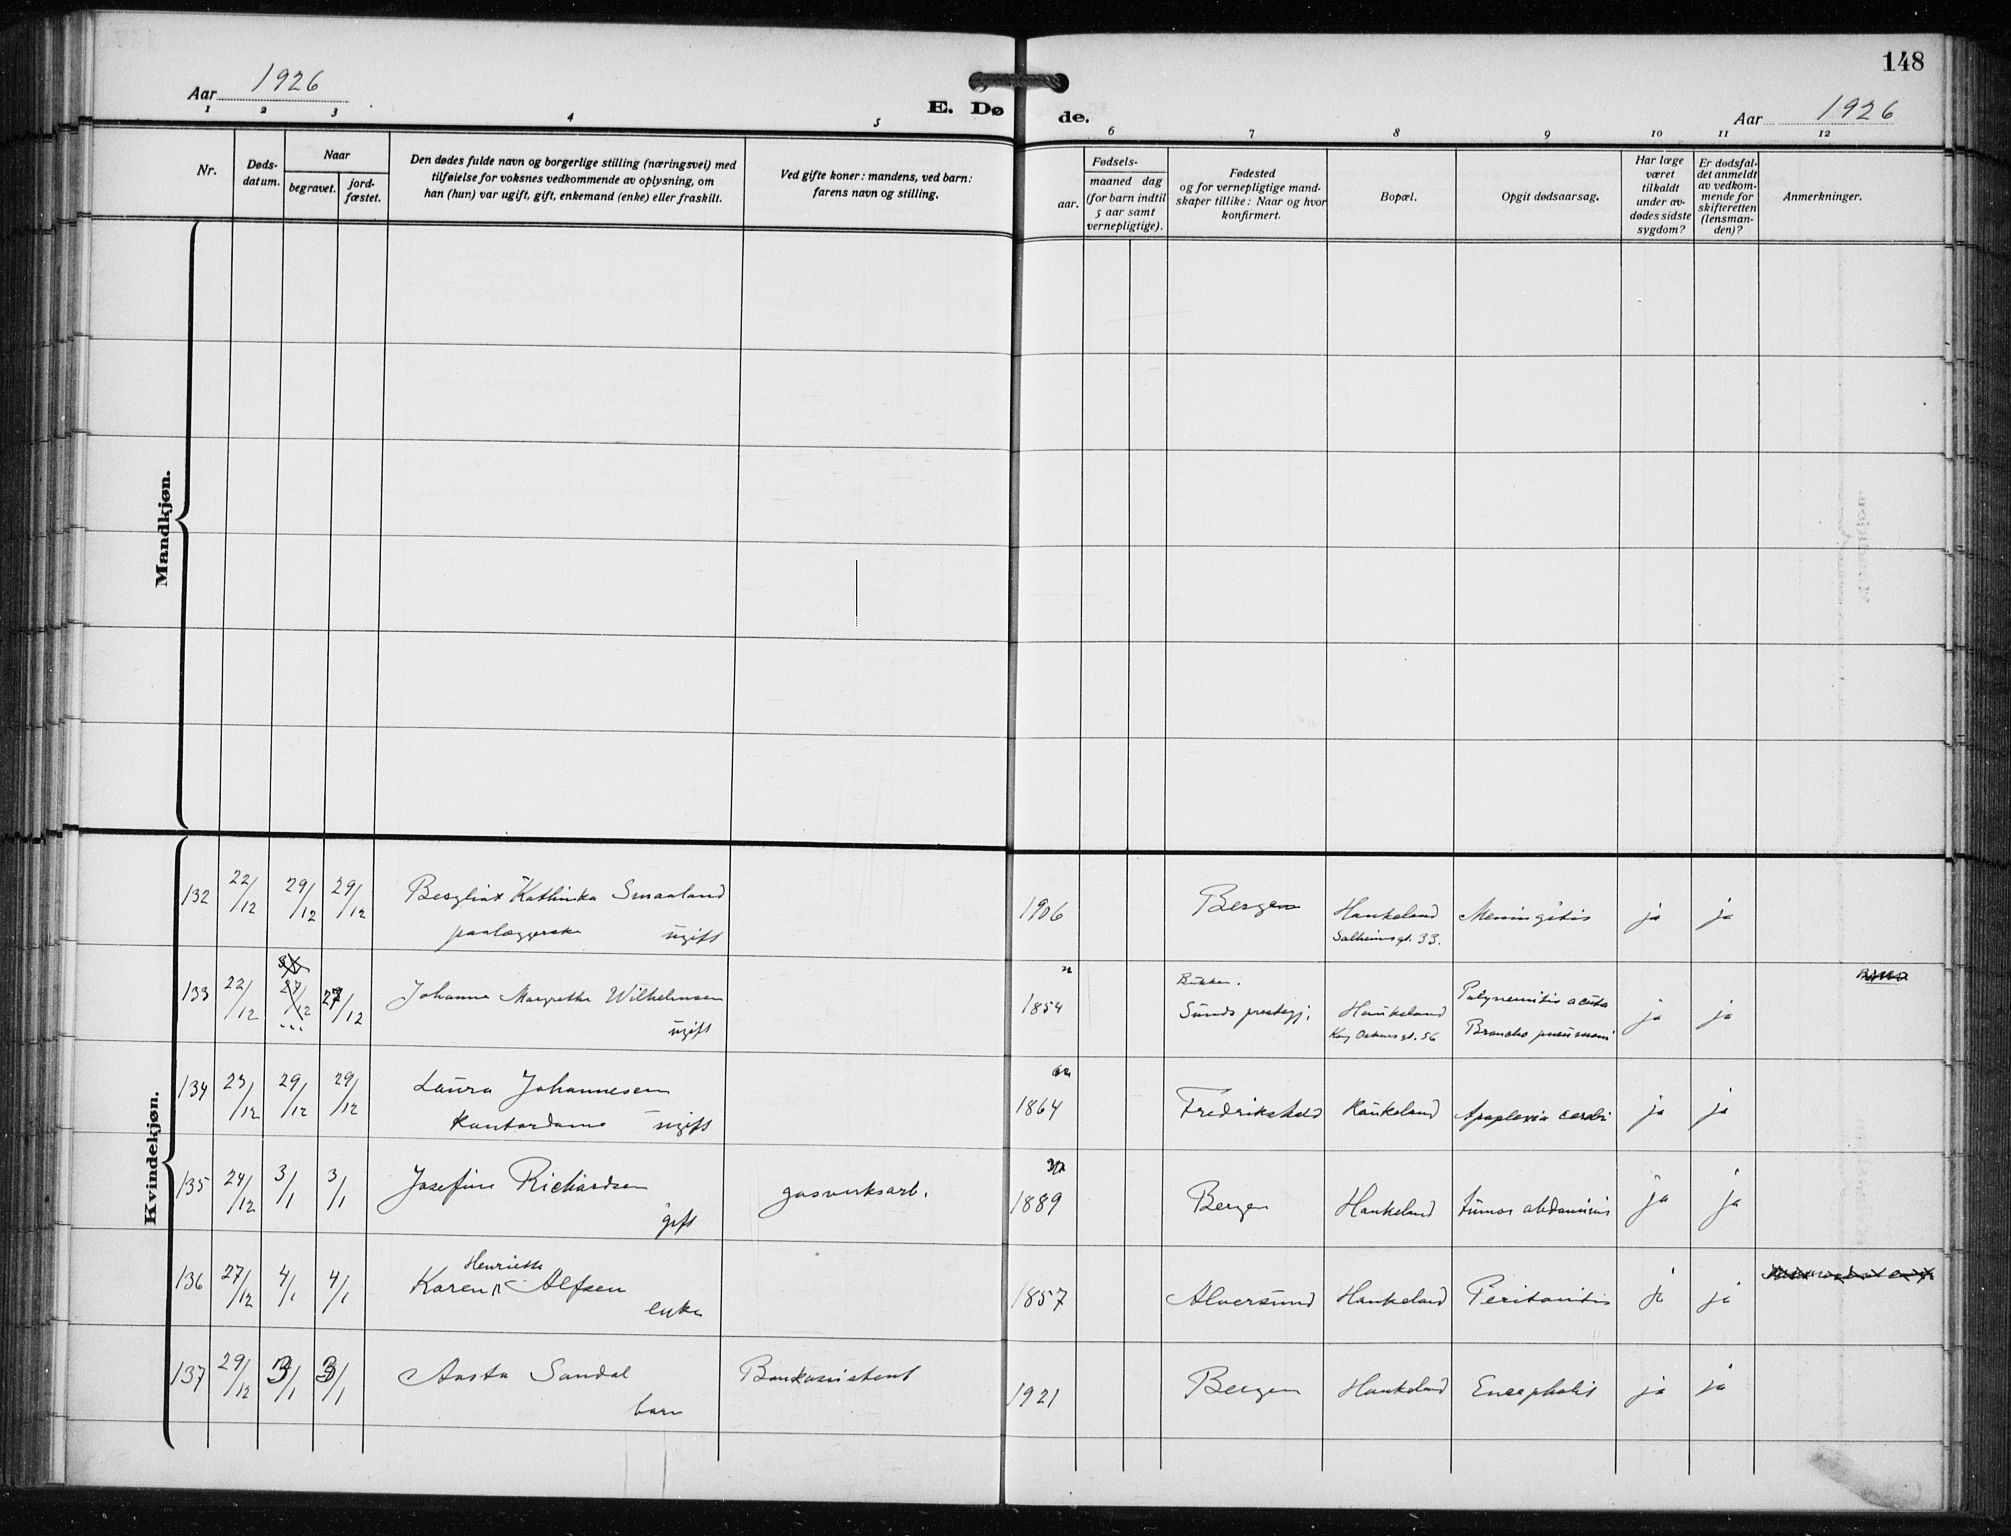 148
Aar 1926
E. Dø de.
Aar 1926
1 2 3 4 5 6 7 8 9 10 11 12
Nr.
Døds-
datum.
Naar
begravet.
jord-
fæstet.
Den dødes fulde navn og borgerlige stilling (næringsvei) med
tilføielse for voksnes vedkommende av oplysning, om
han (hun) var ugift, gift, enkemand (enke) eller fraskilt.
Ved gifte koner: mandens, ved barn:
farens navn og stilling.
Fødsels-
aar.
maaned dag
(for barn indtil
5 aar samt
vernepligtige).
Fødested
og for vernepligtige mand-
skaper tillike: Naar og hvor
konfirmert.
Bopæl.
Opgit dødsaarsag.
Har læge
været
tilkaldt
under av-
dødes sidste
sygdom?
Er dødsfal-
det anmeldt
av vedkom-
mende for
skifteretten
(lensman-
den)?
Anmerkninger.
Mandkjøn.
Kvindekjøn.
132 22/12 29/12 29/12 Kathinka Smaaland 1906 Bergen Haukeland Meningitis ja ja
paalæggerske ugift Solheimsgt. 33.
133 22/12 27/12 27/12 Johanne Margrethe Wilhelmsen 1854 Sunds prestegj. Haukeland Polyneuritis acuta ja ja
ugift Kong Oskarsgt. 56 Broncho pneumoni
134 23/12 29/12 29/12 Laura Johannesen 1864 Fredrikstad Haukeland Apoplexia cerebri ja ja
Kontordame ugift
135 24/12 3/1 3/1 Josefine Richardsen gasverksarb. 1889 Bergen Haukeland tumor abdominis ja ja
gift
Henriette
136 27/12 4/1 4/1 Karen Alfsen 1857 Alversund Haukeland Peritonitis ja ja
enke
137 29/12 3/1 3/1 Aasta Sandal Bankassistent 1921 Bergen Haukeland Encephalit ja ja
barn